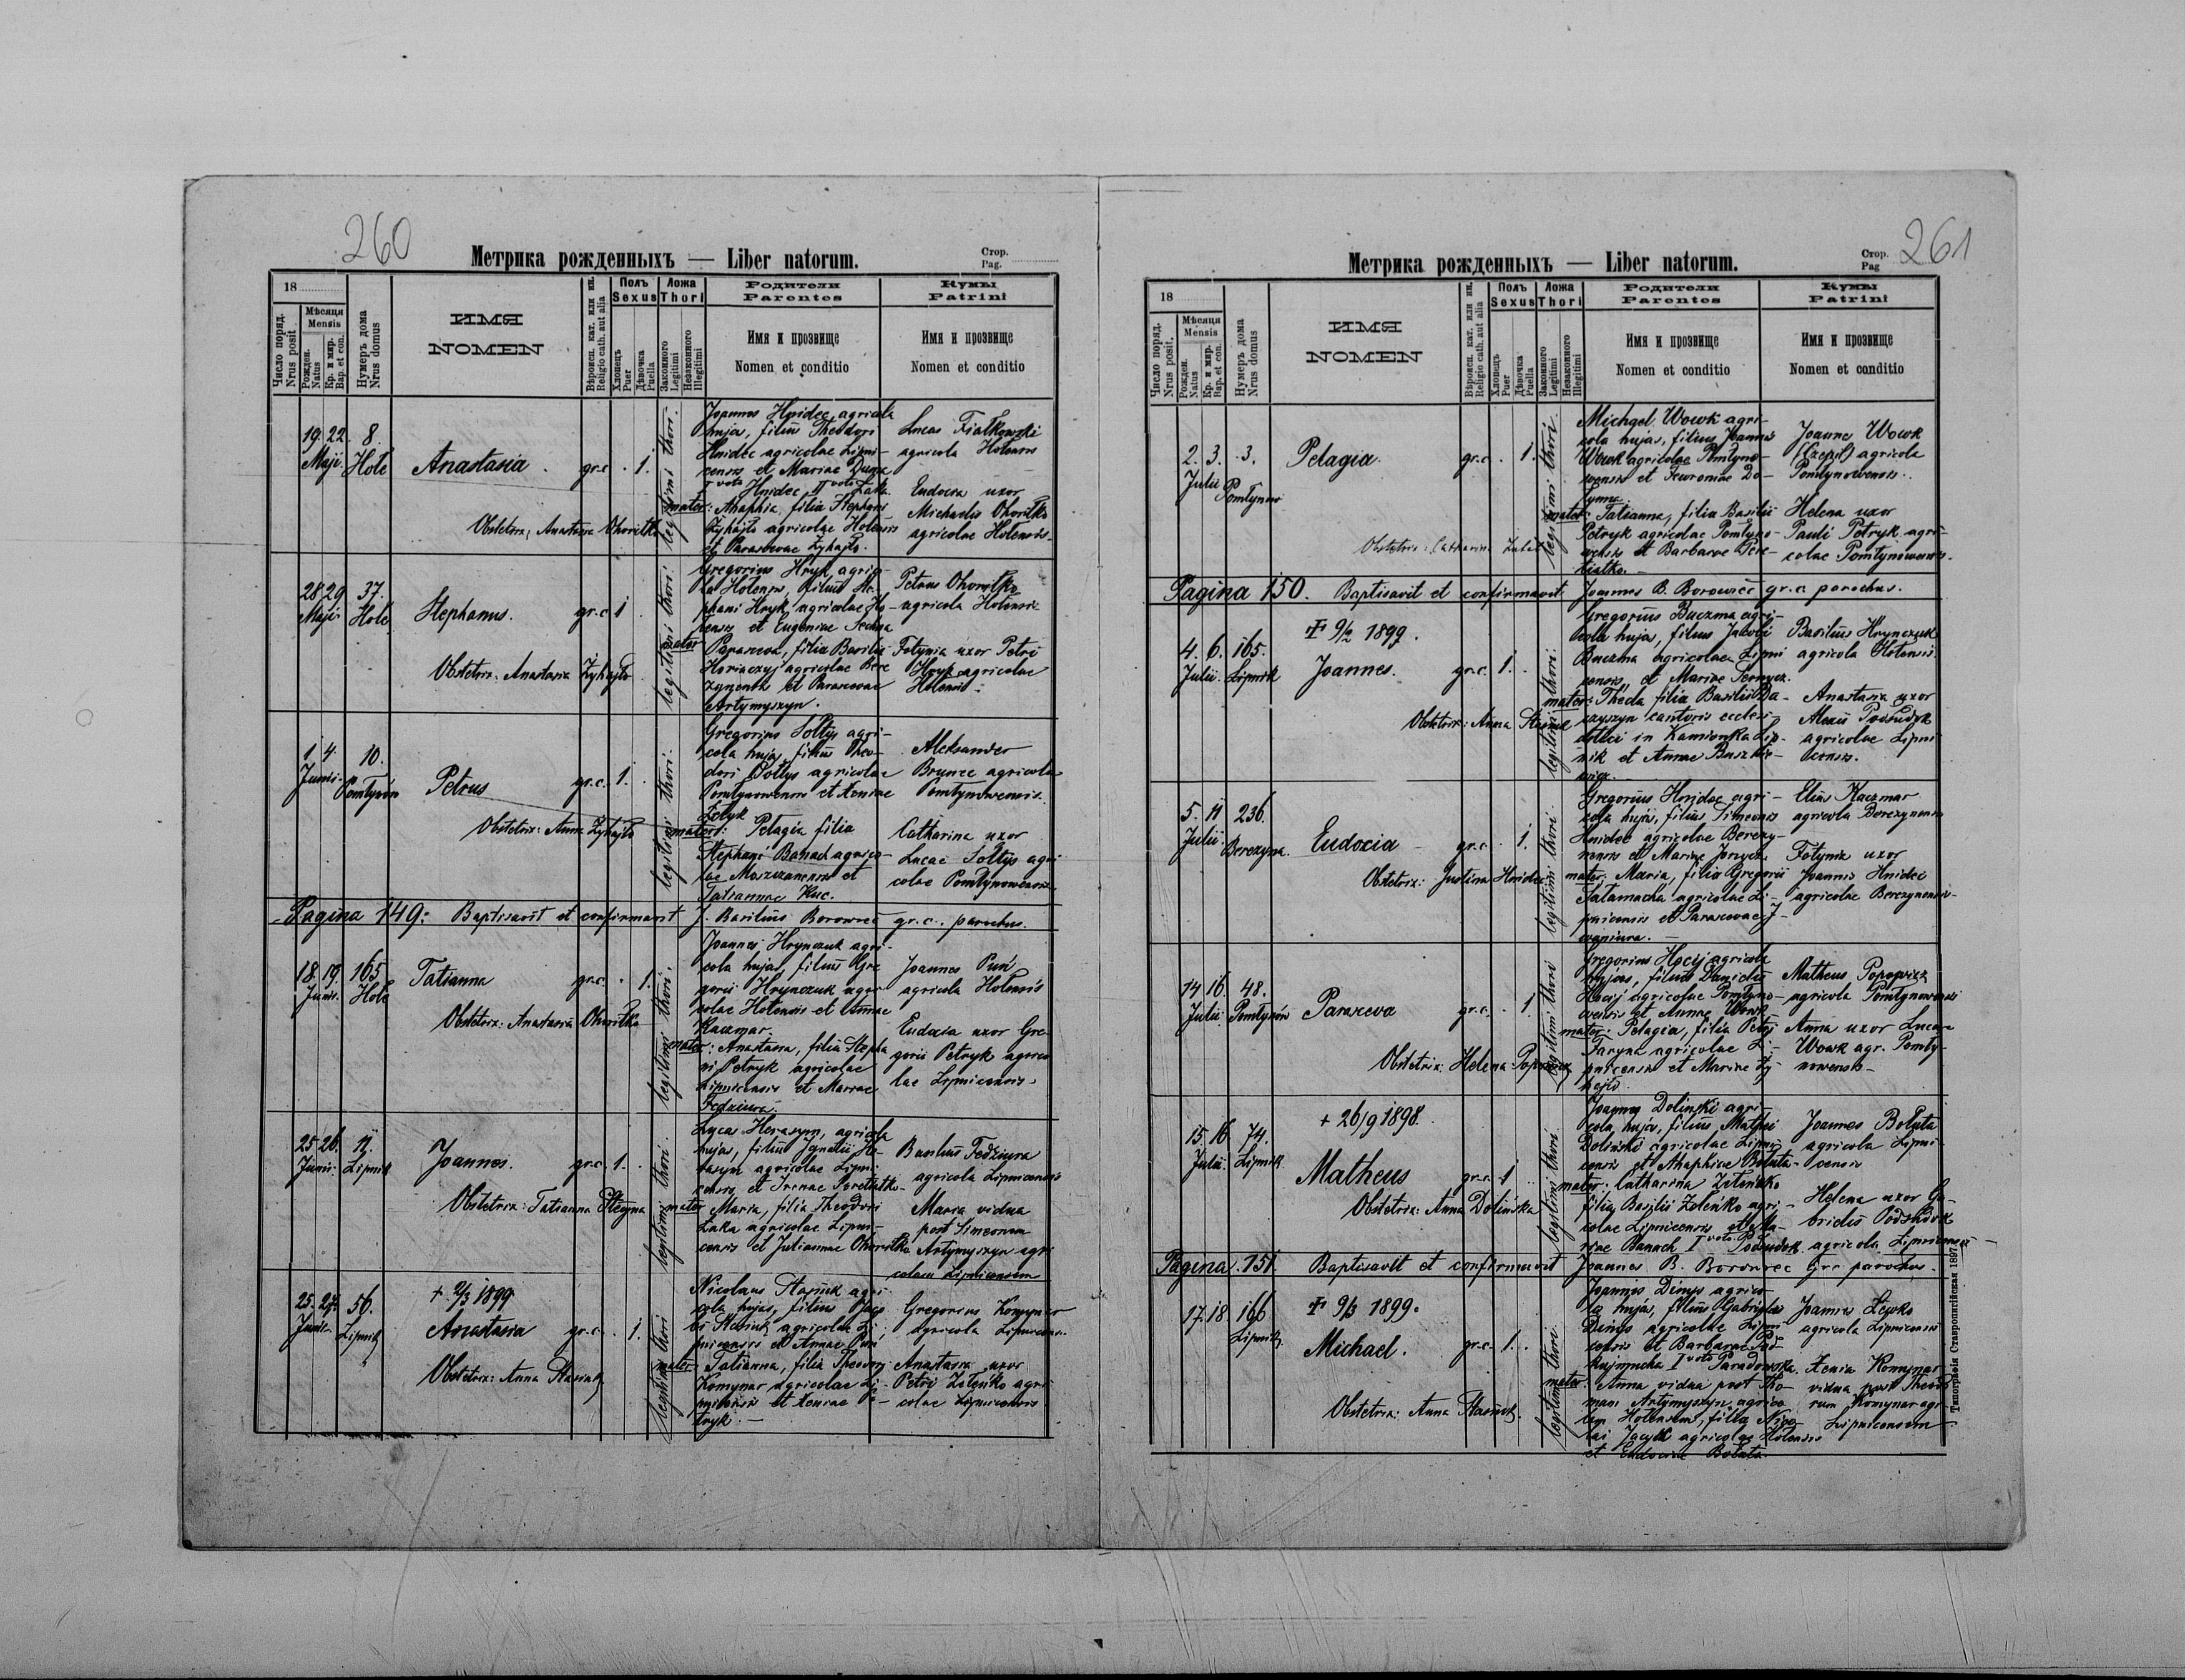 260
Метрика рожденныхъ — Liber natorum.
Стор.
Pag.
18
Число поряд.
Nrus posit
Мѣсяця
Mensis
Рожден.
Natus
Кр. и мир.
Bap. et con.
Нумеръ дома
Nrus domus
ИМЯ
NOMEN
Вѣроисп. кат. или ин.
Religio cath. aut alia
Полъ
Sexus
Хлопецъ
Puer
Дѣвочка
Puella
Ложа
Thori
Законного
Legitimi
Незаконного
Illegitimi
Родители
Parentes
Имя и прозвище
Nomen et conditio
Кумы
Patrini
Имя и прозвище
Nomen et conditio
19. 22. 8.
Maji. Hole
Anastasia. gr.c. 1.
legitimi thori.
Obstetrix: Anastasia Ohoritko
Joannes Hnidec, agricola
hujas, filius Theodori
Hnidec agricolae Lipni-
censis et Mariae
I voto Hnidec, II voto Laka
mater: Ahaphia, filia Stephani
Zyhajlo agricolae Holensis
et Parascevae Zyhajlo.
Lucas Fialkowski
agricola Holensis
Eudocia uxor
Michaelis Ohoritko
agricolae Holensis.
28 29 37.
Maji Hole
Stephanus. gr.c. 1
legitimi thori
Obstetrix: Anastasia Zyhajlo
Gregorius Hryk, agrico-
la Holensis, filius Ste-
phani Hryk, agricolae Ho-
lensis et Eugeniae
mater Parasceva, filia Basilii
agricolae Bere
zynensis et Parascevae
Artymyszyn.
Petrus Ohoritko
agricola Holensis
Fetynia uxor Petri
Hryk agricolae
Holensis.
1 4 10.
Junii. Pomlynów
Petrus gr.c. 1.
legitimi thori.
Obstetrix: Anna Zyhajlo
Gregorius Soltys agri-
cola hujas, filius Theo-
dori Soltys agricolae
Pomlynowensis et Xeniae
mater: Pelagia filia
Stephani Banach agrico-
lae Moszczanensis et
Tatiannae Kuc.
Aleksander
Brunec agricola
Pomlynowensis.
Catharina uxor
Lucae Soltys agri
colae Pomlynowensis
Pagina 149: Baptisavit et confirmavit J. Basilius Borowiec gr.c. parochus.
18. 19. 165
Junii. Hole
Tatianna gr.c. 1.
legitimi thori.
Obstetrix: Anastasia Ohoritko
Joannes Hrynczuk agri-
cola hujas, filius Gre
gorii Hrynczuk agri-
colae Holensis et Annae
Kaczmar.
mater: Anastasia, filia Stepha
ni Petryk agricolae
Lipnicensis et Mariae
Fedziura.
Joannes Pun
agricola Holensis
Eudocia uxor Gre-
gorii Petryk agrico
lae Lipnicensis.
25. 26. 11.
Junii. Lipnik
Joannes. gr.c. 1.
legitimi thori.
Obstetrix: Tatianna
Lucas Herasym, agricola
hujas, filius Ignatii He-
rasym agricolae Lipni-
censis, et Irenae
mater Maria, filia Theodori
Laka agricolae Lipni-
censis et Juliannae Ohoritko
Basilius Fedziura
agricola Lipnicensis
Maria vidua
post Simeonem
Artymyszyn agri
colam Lipnicensem
25. 27. 56.
Junii. Lipnik
+ 2/3 1899
Anastasia gr.c. 1.
legitimi thori
Obstetrix: Anna Stasiuk
Nicolaus Stasiuk agri-
cola hujas, filius Jaco
bi Stasiuk agricolae Li-
pnicensis et Annae Pun
mater: Tatianna, filia Theodori
Komynar agricolae Li-
pnicensis et Xeniae Pe-
tryk.
Gregorius Komynar
agricola Lipnicensis.
Anastasia uxor
Petri Zeleńko agri-
colae Lipnicensis
261
Метрика рожденныхъ — Liber natorum.
Стор.
Pag
18
Число поряд.
Nrus posit.
Мѣсяця
Mensis
Рожден.
Natus
Кр. и мир.
Bap. et con.
Нумеръ дома
Nrus domus
ИМЯ
NOMEN
Вѣроисп. кат. или ин.
Religio cath. aut alia
Полъ
Sexus
Хлопецъ
Puer
Дѣвочка
Puella
Ложа
Thori
Законного
Legitimi
Незаконного
Illegitimi
Родители
Parentes
Имя и прозвище
Nomen et conditio
Кумы
Patrini
Имя и прозвище
Nomen et conditio
2. 3. 3.
Julii Pomlynów
Pelagia. gr.c. 1.
legitimi thori.
Obstetrix: Catharina
Michael Wowk agri-
cola hujas, filius Joannis
Wowk agricolae Pomlyno-
wensis et Fewroniae
mater: Tatianna, filia Basilii
Petryk agricolae Pomlyno-
wensis et Barbarae Pere-
tiatko.
Joannes Wowk
agricola
Pomlynowensis.
Helena uxor
Pauli Petryk agri-
colae Pomlynowensis.
Pagina 150. Baptisavit et confirmavit Joannes B. Borowiec gr.c parochus.
4. 6. 165.
Julii. Lipnik
+ 9/2 1899.
Joannes. gr.c. 1.
legitimi thori.
Obstetrix: Anna Stasiuk
Gregorius Buczma agri-
cola hujas, filius Jacobi
Buczma agricolae Lipni
censis, et Mariae
mater: Thecla filia Basilii
cantoris eccles.
in Kamionka Lip-
nik et Annae
Basilius Hrynczuk
agricola Holensis.
Anastasia uxor
Alexii Podsudyk
agricolae Lipni
censis.
5. 11 236.
Julii. Berezyna.
Eudocia gr.c. 1.
legitimi thori
Obstetrix: Justina Hnidec
Gregorius Hnidec agri-
cola hujas, filius Simeonis
Hnidec agricolae Berezy-
nensis et Mariae
mater: Maria, filia Gregorii
Salamacha agricolae Li-
pnicensis et Parascevae
Elias Kaczmar
agricola Berezynensis
Fetynia uxor
Joannis Hnidec
agricolae Berezynensis.
14 16 48.
Julii. Pomlynów
Parasceva gr.c. 1
legitimi thori
Obstetrix: Helena Popowicz
Gregorius Hocij agricola
hujas, filius Danielis
Hocij agricolae Pomlyno-
wensis et Annae Wowk.
mater: Pelagia, filia Petri
Faryna agricolae Li-
pnicensis et Mariae Zy-
hajlo.
Matheus Popowicz
agricola Pomlynowensis
Anna uxor Lucae
Wowk agr. Pomly-
nowensis.
15. 16 74.
Julii. Lipnik.
+ 26/9 1898.
Matheus gr.c. 1
legitimi thori
Obstetrix: Anna Dolińska
Joannes Dolinski agri-
cola hujas, filius Mathei
Dolinski agricolae Lipni-
censis et Ahaphiae Boluta
mater: Catharina Zeleńko
filia Basilii Zeleńko agri-
colae Lipnicensis et Ma-
riae Banach I voto Podsudek
Joannes Boluta
agricola Lipni-
censis
Helena uxor Ga-
brielis Podsudek
agricola Lipnicensis
Pagina 151. Baptisavit et confirmavit Joannes B. Borowiec gr.c parochus.
17. 18. 166
Lipnik
+ 9/3 1899.
Michael. gr.c. 1.
legitimi thori.
Obstetrix: Anna Stasiuk.
Joannes Dinys agrico-
la hujas, filius Gabrielis
Dinys agricolae Lipni
censis et Barbarae
I voto Paradowska.
mater: Anna vidua post Tho-
mam Artymyszyn agrico
lam Holensem, filia Nico
lai Jacyk agricolae Holensis
et Eudociae Boluta.
Joannes Lewko
agricola Lipnicensis
Xenia Komynar
vidua post Theodo
rum Komynar agr.
Lipnicensem
Типографія Ставропигійская 1897.